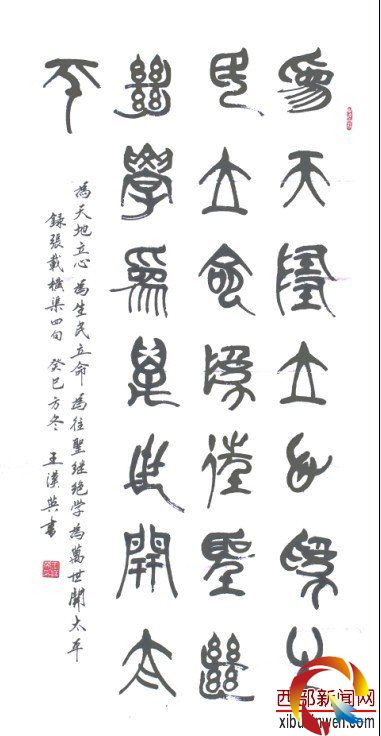 為天地立心為生
民立命為往聖繼
絕學為萬世開太
平
為天地立心 為生民立命 為往聖继绝学為萬世開太平
録張載橫渠四句 癸巳方冬 王漢英書
西部新闻网
xibuxinwen.com